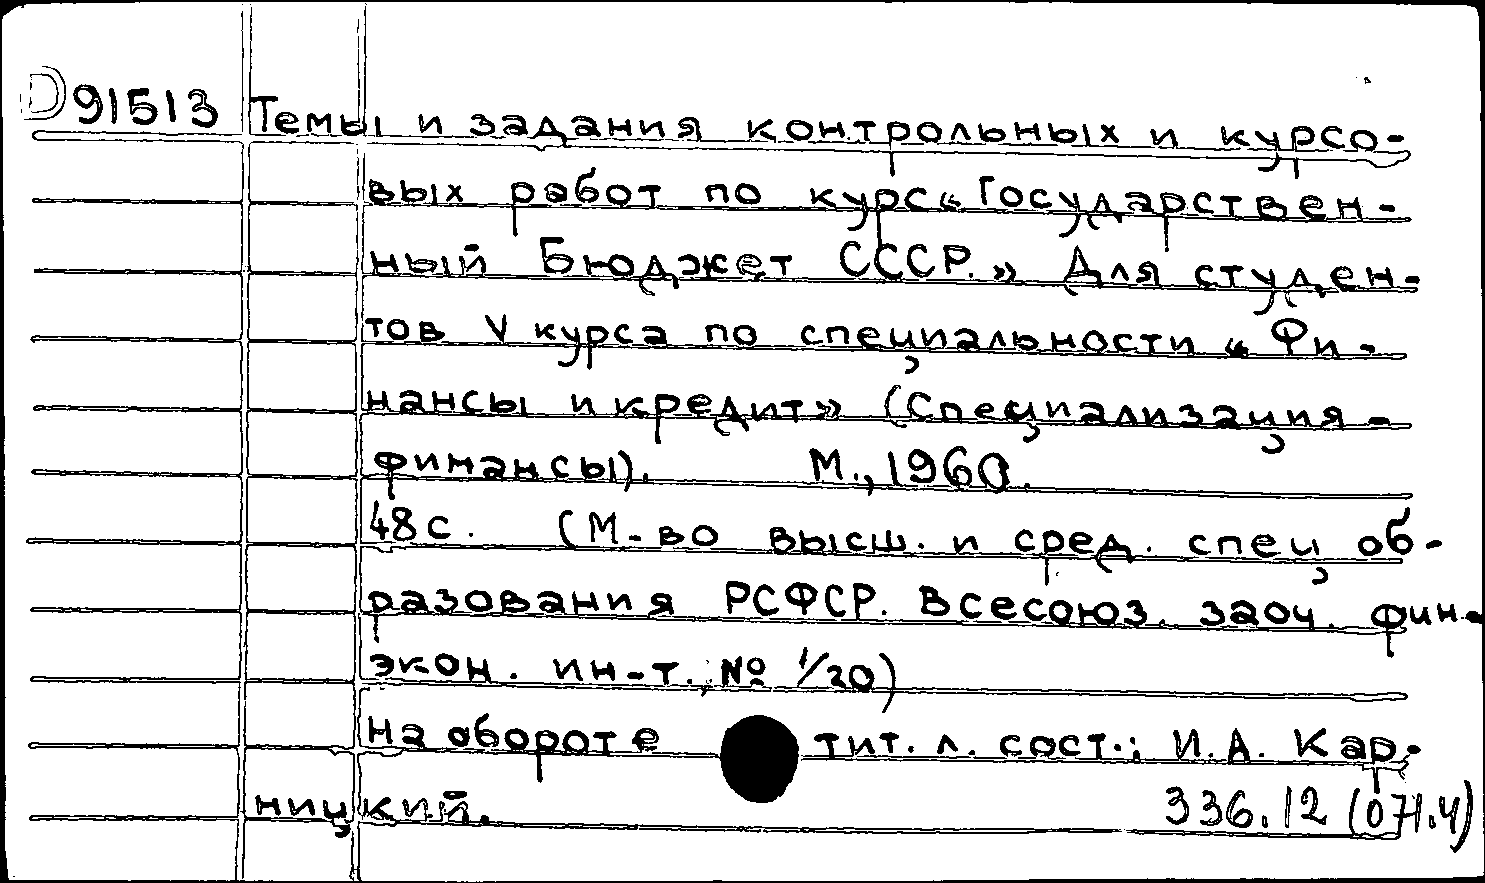 D91513 Темы и задания контрольных и курсо-
вых работ по курс „Государствен-
ный Бюджет СССР.” Для студен-
тов V курса по специальности „Фи-
нансы и кредит” (Специализация -
финансы). М., 1960.
48 с. (М-во высш. и сред. спец об-
разования РСФСР. Всесоюз. заоч. фин.-
экон. ин-т., № 1/20)
На обороте тит. л. сост.: И.А. Кар-
ницкий. 336.12 (071.4)